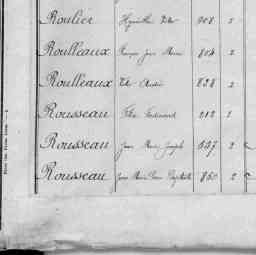 Roulier Hyacinthe 908 2
Roulleaux François Jean Marie 804 2
Roulleaux 828 2
Rousseau Félix Ferdinand 212 1
Rousseau Jean Marie Joseph 2
Rousseau Jean Marie Pierre Baptiste 860 2